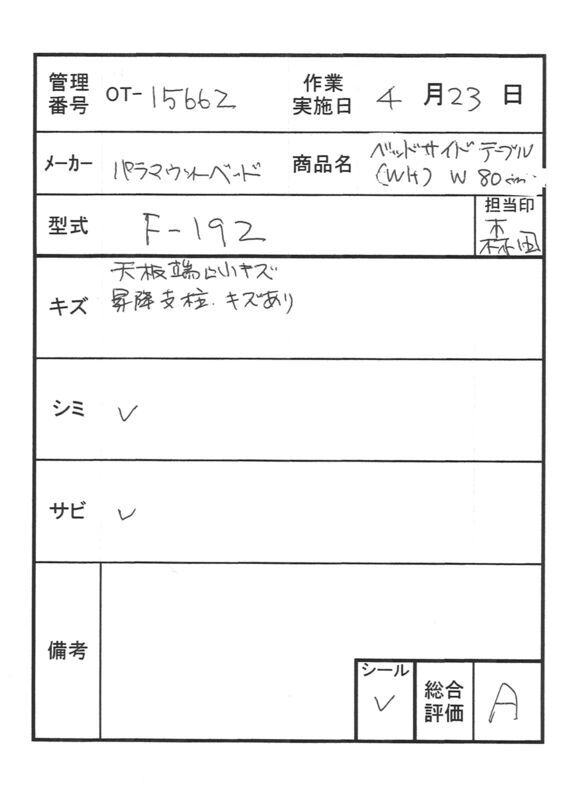 管理番号 OT-15662 作業実施日 4月23日
メーカー パラマウントベッド 商品名 ベッドサイドテーブル
(WH) W 80cm
型式 F-192 担当印
森田
キズ 天板端に小キズ
昇降支柱.キズあり
シミ ✓
サビ ✓
備考
シール ✓ 総合評価 A